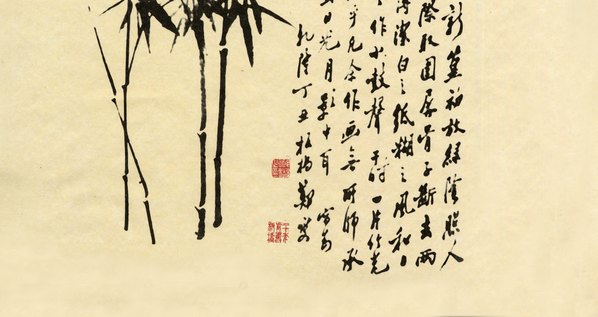 新篁初放綠陰照人
際取圍屏骨子斷去兩
薄潔白之紙糊之風和日
作小鼓聲于時一片竹光
乎凡余作画無所師承
日光月影中耳
乾隆丁丑板橋鄭燮